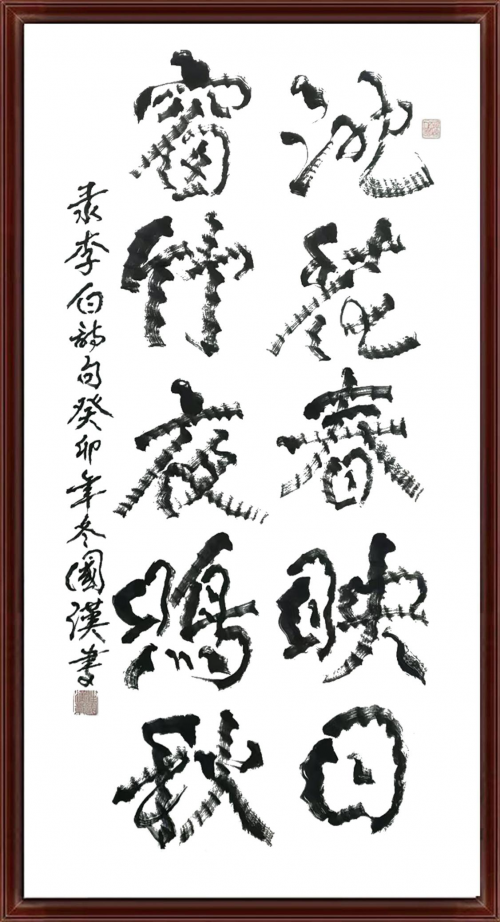 池花春映日
窗竹夜鸣秋
录李白诗句癸卯年冬国汉书